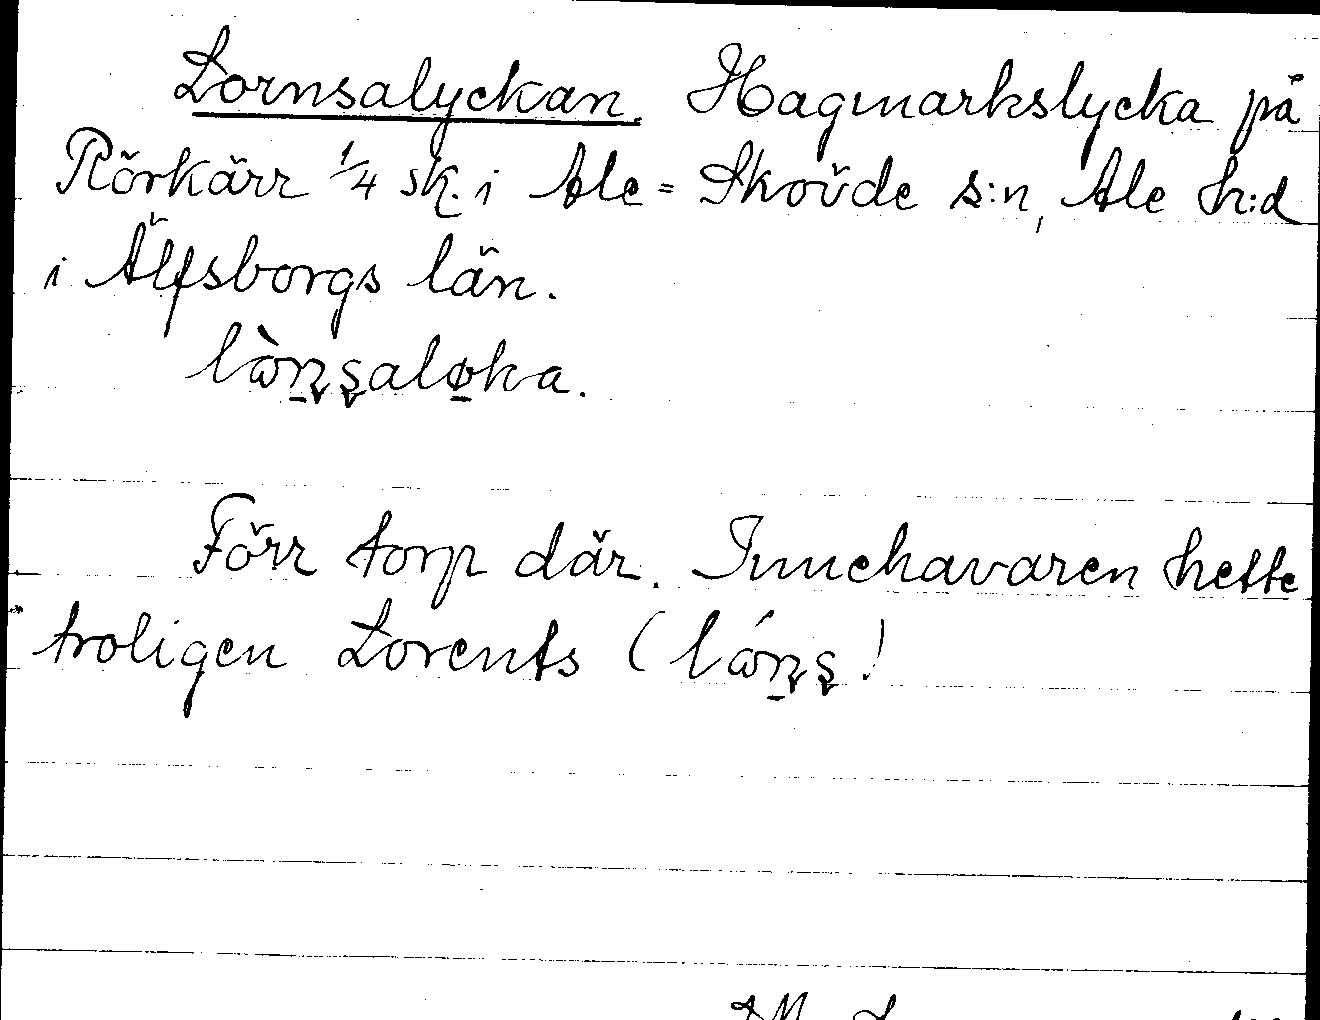 Lornsalyckan. Hagmarkslycka på
Rörkärr 1/4 sk. i Ale-Skövde s:n, Ale h:d
i Älfsborgs län.
lɷ̀ṉʂalø̱ka.
Förr torp där. Innehavaren hette
troligen Lorents (lɷ́ṉʂ!